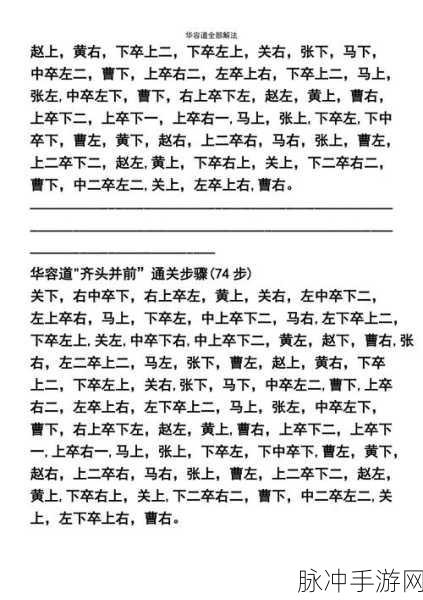 华容道全部解法
赵上，黄右，下卒上二，下卒左上，关右，张下，马下，
中卒左二，曹下，上卒右二，左卒上右，下卒上二，马上，
张左,中卒左下，曹下，右上卒下左，赵左，黄上，曹右，
上卒下二，上卒下一，上卒右一,马上，张上,下卒左,下中
卒下，曹左，黄下，赵右，上二卒右，马右，张上，曹左，
上二卒下二，赵左,黄上，下卒右上，关上，下二卒右二，
曹下，中二卒左二,关上，左卒上右,曹右。
华容道"齐头并前”通关步骤(74步)
关下，右中卒下，右上卒左，黄上，关右，左中卒下二，
左上卒右，马上，下卒左，中上卒下二，马右,左下卒上二，
下卒左上,关左,中卒下右,中上卒下二，黄左，赵下，曹右,张
右，左二卒上二，马左，张下，曹左，赵上，黄右，下卒
上二，下卒左上，关右,张下，马下，中卒左二,曹下,上卒
右二，左卒上右，左下卒上二，马上，张左，中卒左下，
曹下，右上卒下左，赵左，黄上,曹右，上卒下二，上卒下
一,上卒右一,马上，张上，下卒左，下中卒下,曹左，黄下，
赵右，上二卒右，马右，张上，曹左，上二卒下二，赵左，
黄上,下卒右上，关上,下二卒右二，曹下，中二卒左二,关
上，左下卒上右，曹右。
脉冲手游网